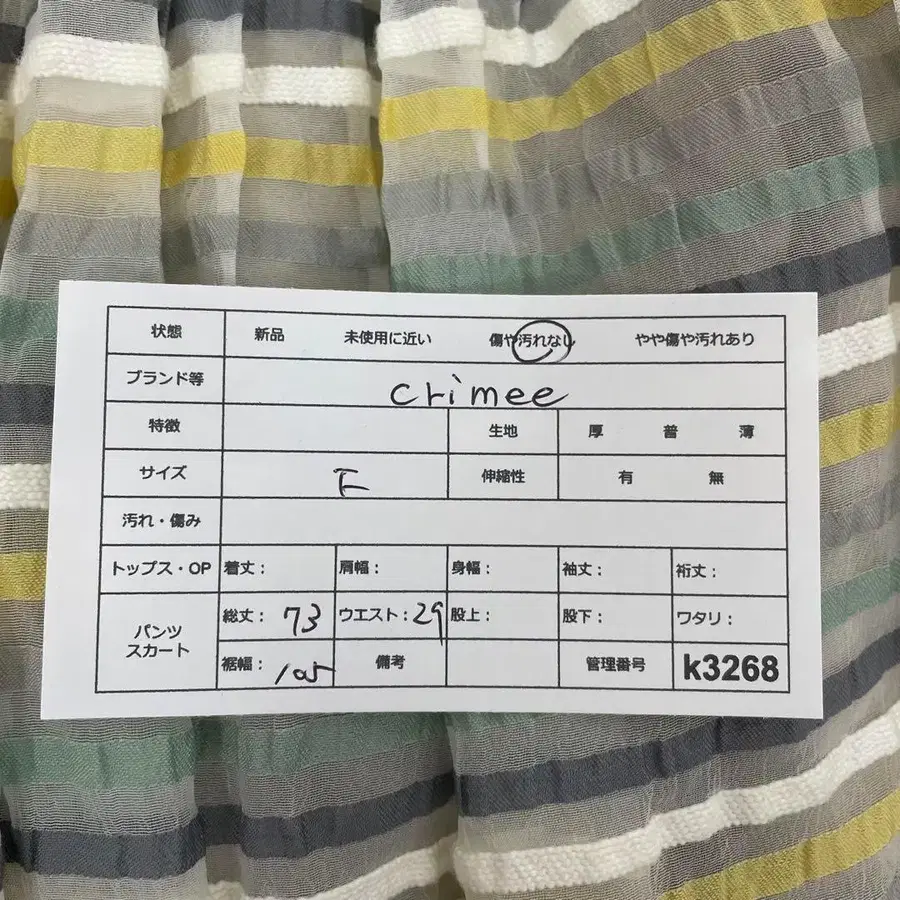 状態 新品 未使用に近い 傷や汚れなし やや傷や汚れあり
ブランド等 crimee
特徴 生地 厚 普 薄
サイズ F 伸縮性 有 無
汚れ・傷み
トップス・OP 着丈： 肩幅： 身幅： 袖丈： 裄丈：
パンツ スカート 総丈：73 ウエスト：29 股上： 股下： ワタリ：
裾幅：105 備考 管理番号 k3268